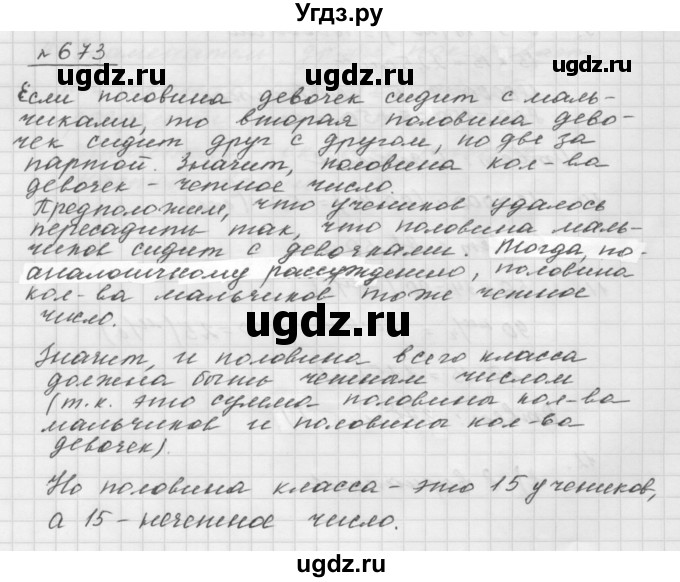 Угдз.ру
№673
Если половина девочек сидит с маль-
чиками, то вторая половина дево-
чек сидит друг с другом, по две за
партой. Значит, половина кол-ва
девочек - четное число.
Предположим, что учеников удалось
пересадить так, что половина маль-
чиков сидит с девочками. Тогда, по
аналогичному рассуждению, половина
кол-ва мальчиков тоже четное
число.
ugdz.ru ugdz.ru
Значит, и половина всего класса
должна быть четным числом
(т.к. это сумма половины кол-ва
мальчиков и половины кол-ва
девочек).
ugdz.ru ugdz.ru
Но половина класса - это 15 учеников,
а 15 - нечетное число.
ugdz.ru ugdz.ru